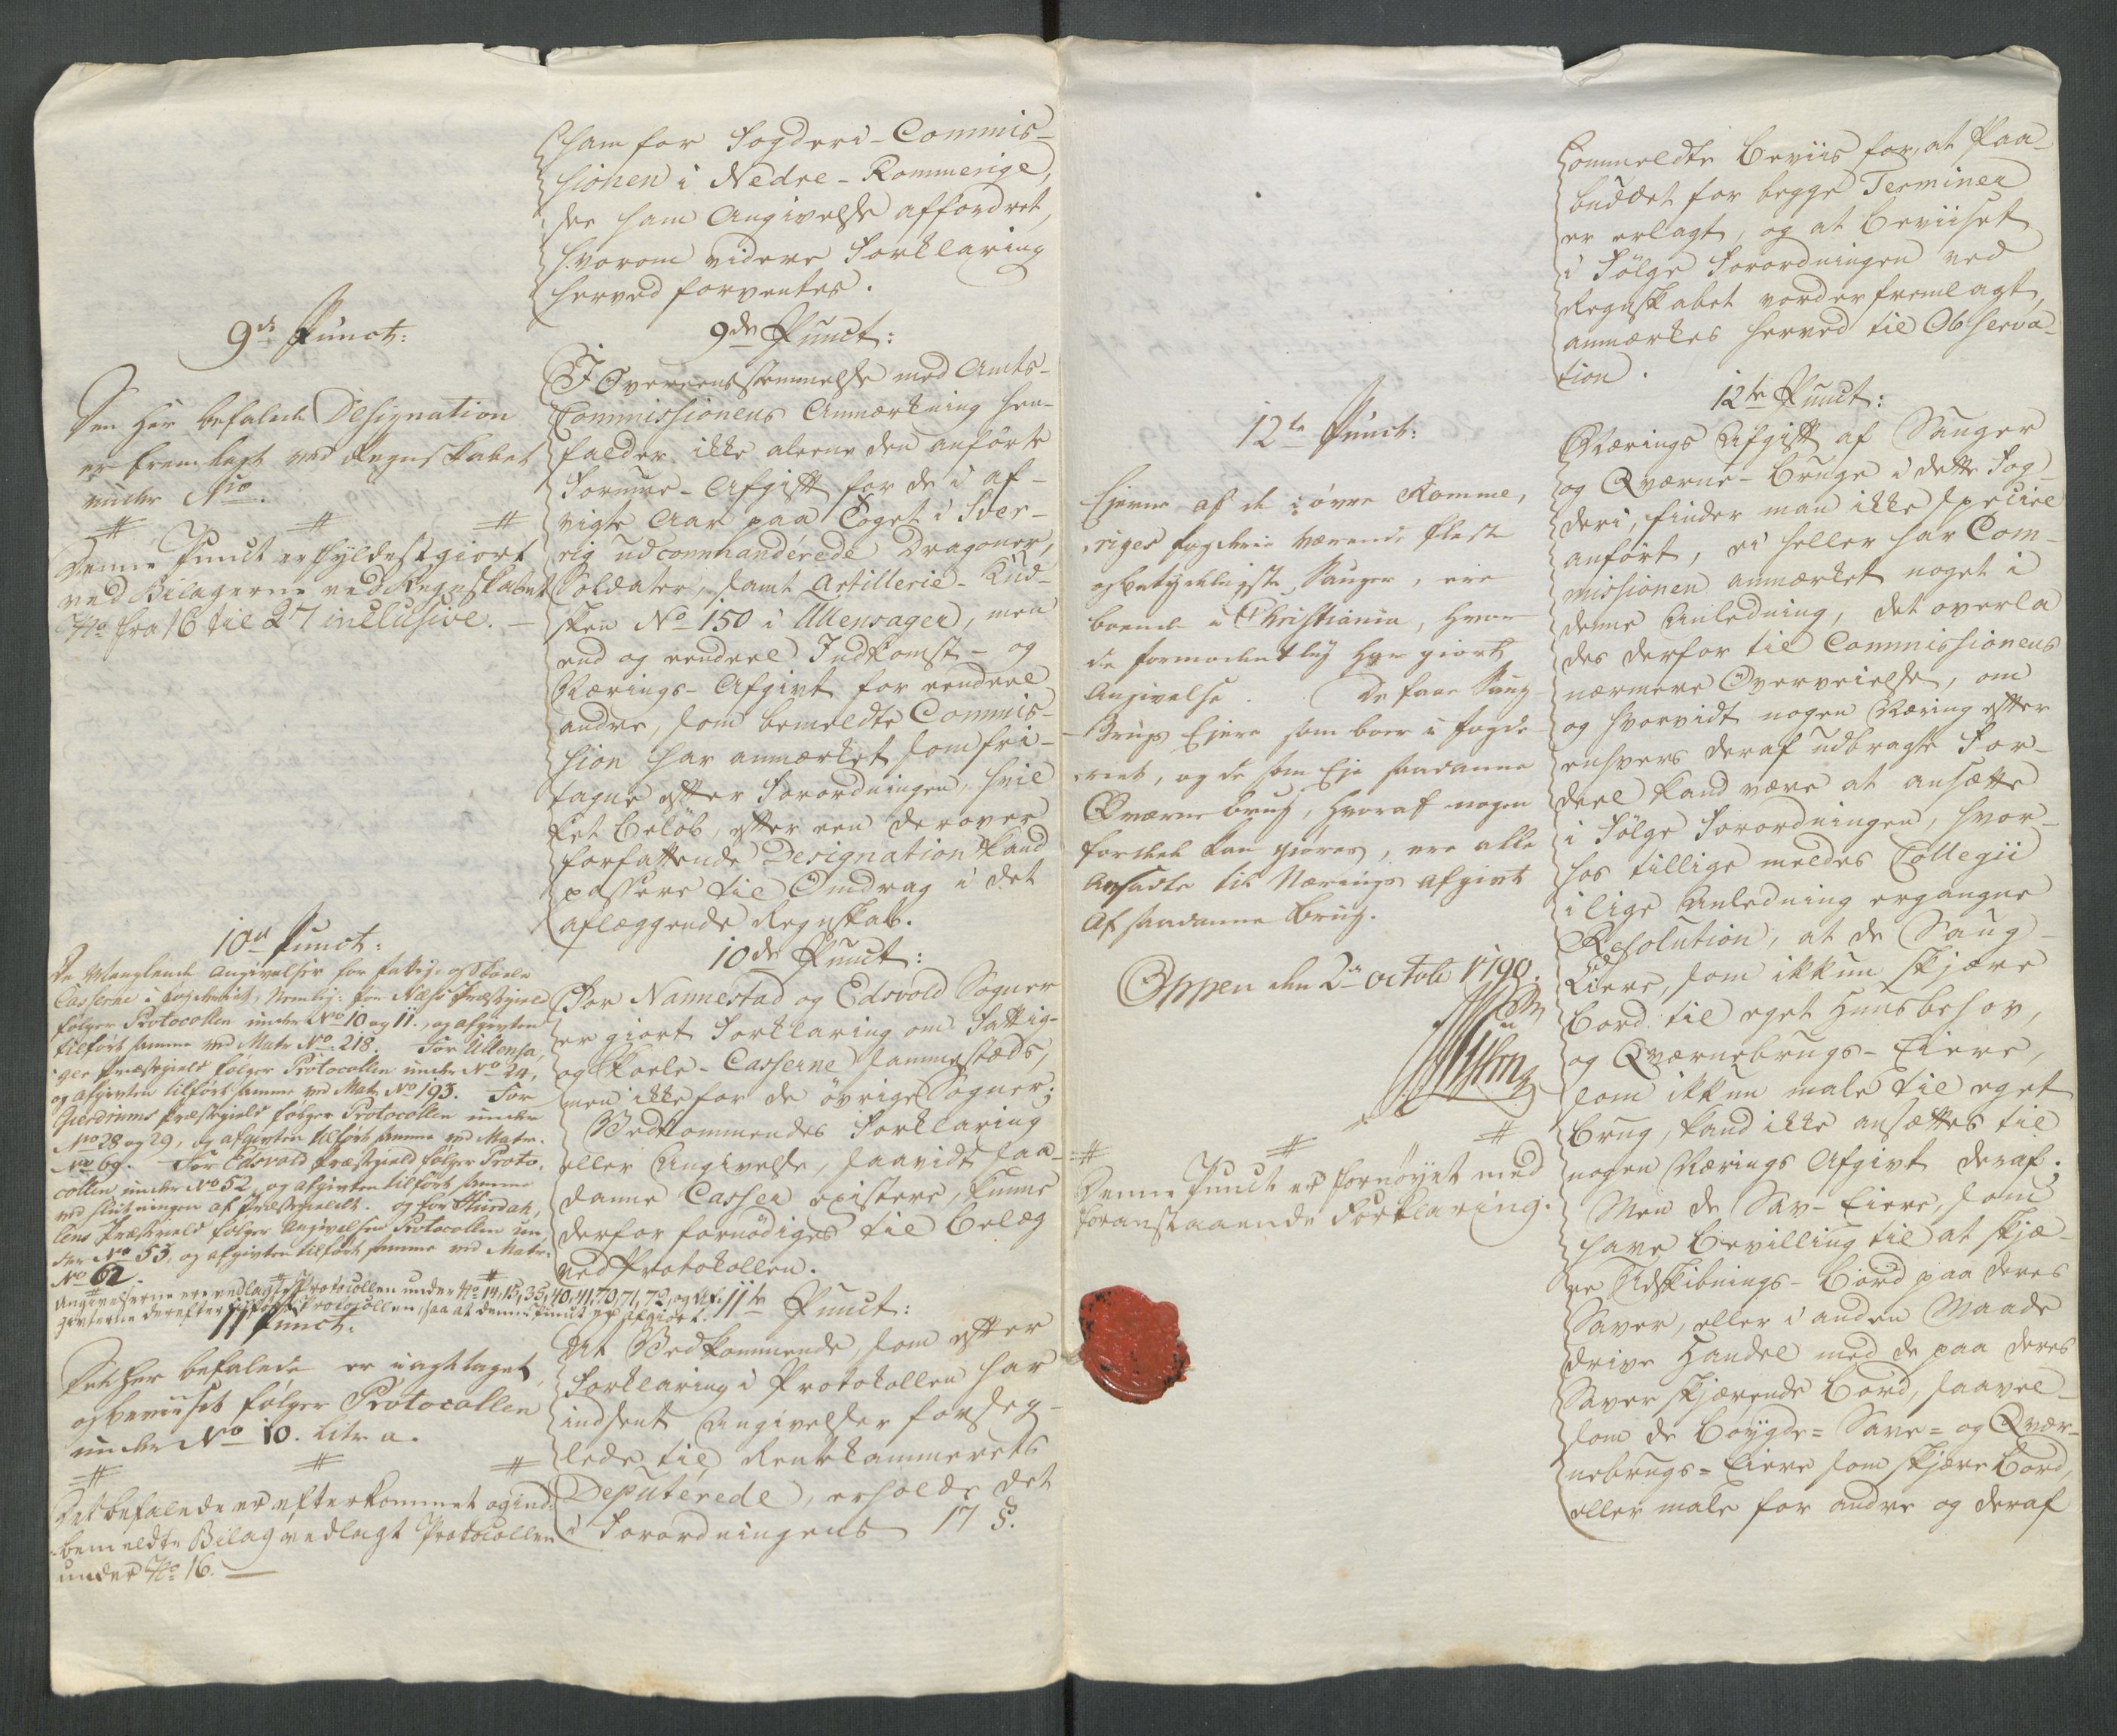 9de Punct:
Den her befalede Designation
er fremlagt ved Regnskabet
under No
Denne Punct er fyldestgiort
ved Bilagerne ved Regnskabet
No fra 16 til 27 inclusive.
10de Punct:
De Manglende Angivelser for Fattige og Skole
Casserne i fogderiet, Nemlig: for Næss Præstegield
følger Protocollen under No 10 og 11., og afgivten
tilført samme ved Matr No 218. For Ullensa,
ger Præstegield følger Protocollen under No 24,
og afgivten tilført samme ved Matr No 193. For
Gierdrums Præstegield følger Protocollen under
No 28 og 29, og afgivten tilført samme ved Matr.
No 69. For Edsvold Præstegield følger Proto,
collen under No 52, og afgivten tilført samme
ved slutningen af Præstegieldet. og for Hurdah,
lens Præstegield følger Angivelsen Protocollen un,
der No 53, og afgivten tilført samme ved Matr.
No 62.
Angivelserne ere vedlagte Protocollen under No 14, 15, 35, 40, 41, 70, 71, 72, og Af,
givterne derefter tilført Protocollen, saa at denne Punct er afgiort.
11te Punct.
Det her befalede er iagttaget,
og beviiset følger Protocollen
under No 10. Litr a.
Det befalede er efterkommet og ind-
bemeldte Bilag vedlagt Protocollen
under No 16.
ham for Fogderi-Commis-
sionen i Nedre-Rommerige,
see ham Angivelse affordret,
hvorom videre Forklaring
herved forventes.
9de Punct:
I Overeensstemmelse med Amts-
Commissionens Anmærkning hen-
falder ikke aleene den anførte
Formue-Afgift for de i af-
vigte Aar paa Toget i Sver-
rig udcommanderede Dragoner,
Soldater, samt Artillerie-Kud-
sken No 150 i Ullensager, men
end og eendeel Indkomst- og
Nærings-Afgivt for eendeel
andre, som bemeldte Commis-
sion har anmærket som fri-
tagne efter Forordningen, hvil
ket Beløb, efter een derover
forfattende Designation kand
passere til Omdrag i det
aflæggende Regnskab.
10de Punct:
For Nannestad og Edsvold Sogner
er giort Forklaring om Fattig-
og Skole-Casserne sammesteds,
men ikke for de øvrige Sogner;
Vedkommendes Forklaring
eller Angivelse, saavidt saa-
danne Casser existere, kunne
derfor fornødiges til Belæg
ved Protokollen.
11te Punct:
At Vedkommende, som efter
Forklaring i Protokollen har
indsent Angivelser forseg-
lede til Rentekammerets
Deputerede, erholde det
i Forordningens 17 §.
12te Punct:
Eierne af de i øvre Romme,
riges fogderie værende fleste
og betydeligste Sauger, ere
boende i Christiania, hvor
de formodentlig har giort
Angivelse. De faae Saug
Brugs Eiere som boer i fogde
riet, og de som Eje saadanne
Qværnebrug, hvoraf nogen
fordeel kan giøres, ere alle
Ansadte til Nærings afgivt
Af saadanne Brug.
Oppen den 2de octobr 1790.
Denne Punct er fornøyet med
foranstaaende Forklaring.
ommeldte Beviis for, at Paa-
buddet for begge Terminer
er erlagt, og at Beviiset
i Følge Forordningen ved
Regnskabet vorder fremlagt,
anmærkes herved til Observa-
tion.
12te Punct:
Nærings Afgift af Sauger
og Qværne-Bruge i dette Fog-
deri, finder man ikke speciel
anført, ei heller har Com-
missionen anmærket noget i
denne Anledning, det overla
des derfor til Commissionens
nærmere Overveielse, om
og hvorvidt nogen Næring efter
enhvers deraf udbragte For-
deel kand være at ansætte
i Følge Forordningen, hvor-
hos tillige meldes Collegii
i lige Anledning ergangne
Resolution, at de Saug-
Eiere, som ikkun skjære
Bord til eget Huusbehov,
og Qværnebrugs-Eiere,
som ikkun male til eget
Brug, kand ikke ansættes til
nogen Nærings Afgivt deraf;
Men de Sav-Eiere, som
have Bevilling til at skjæ-
re Udskibnings-Bord paa deres
Saver, eller i anden Maade
drive Handel med de paa deres
Saver skjærende Bord, saavel-
som de Bøygde= Save= og Qvær-
nebrugs= Eiere som skjære Bord,
eller male for andre og deraf